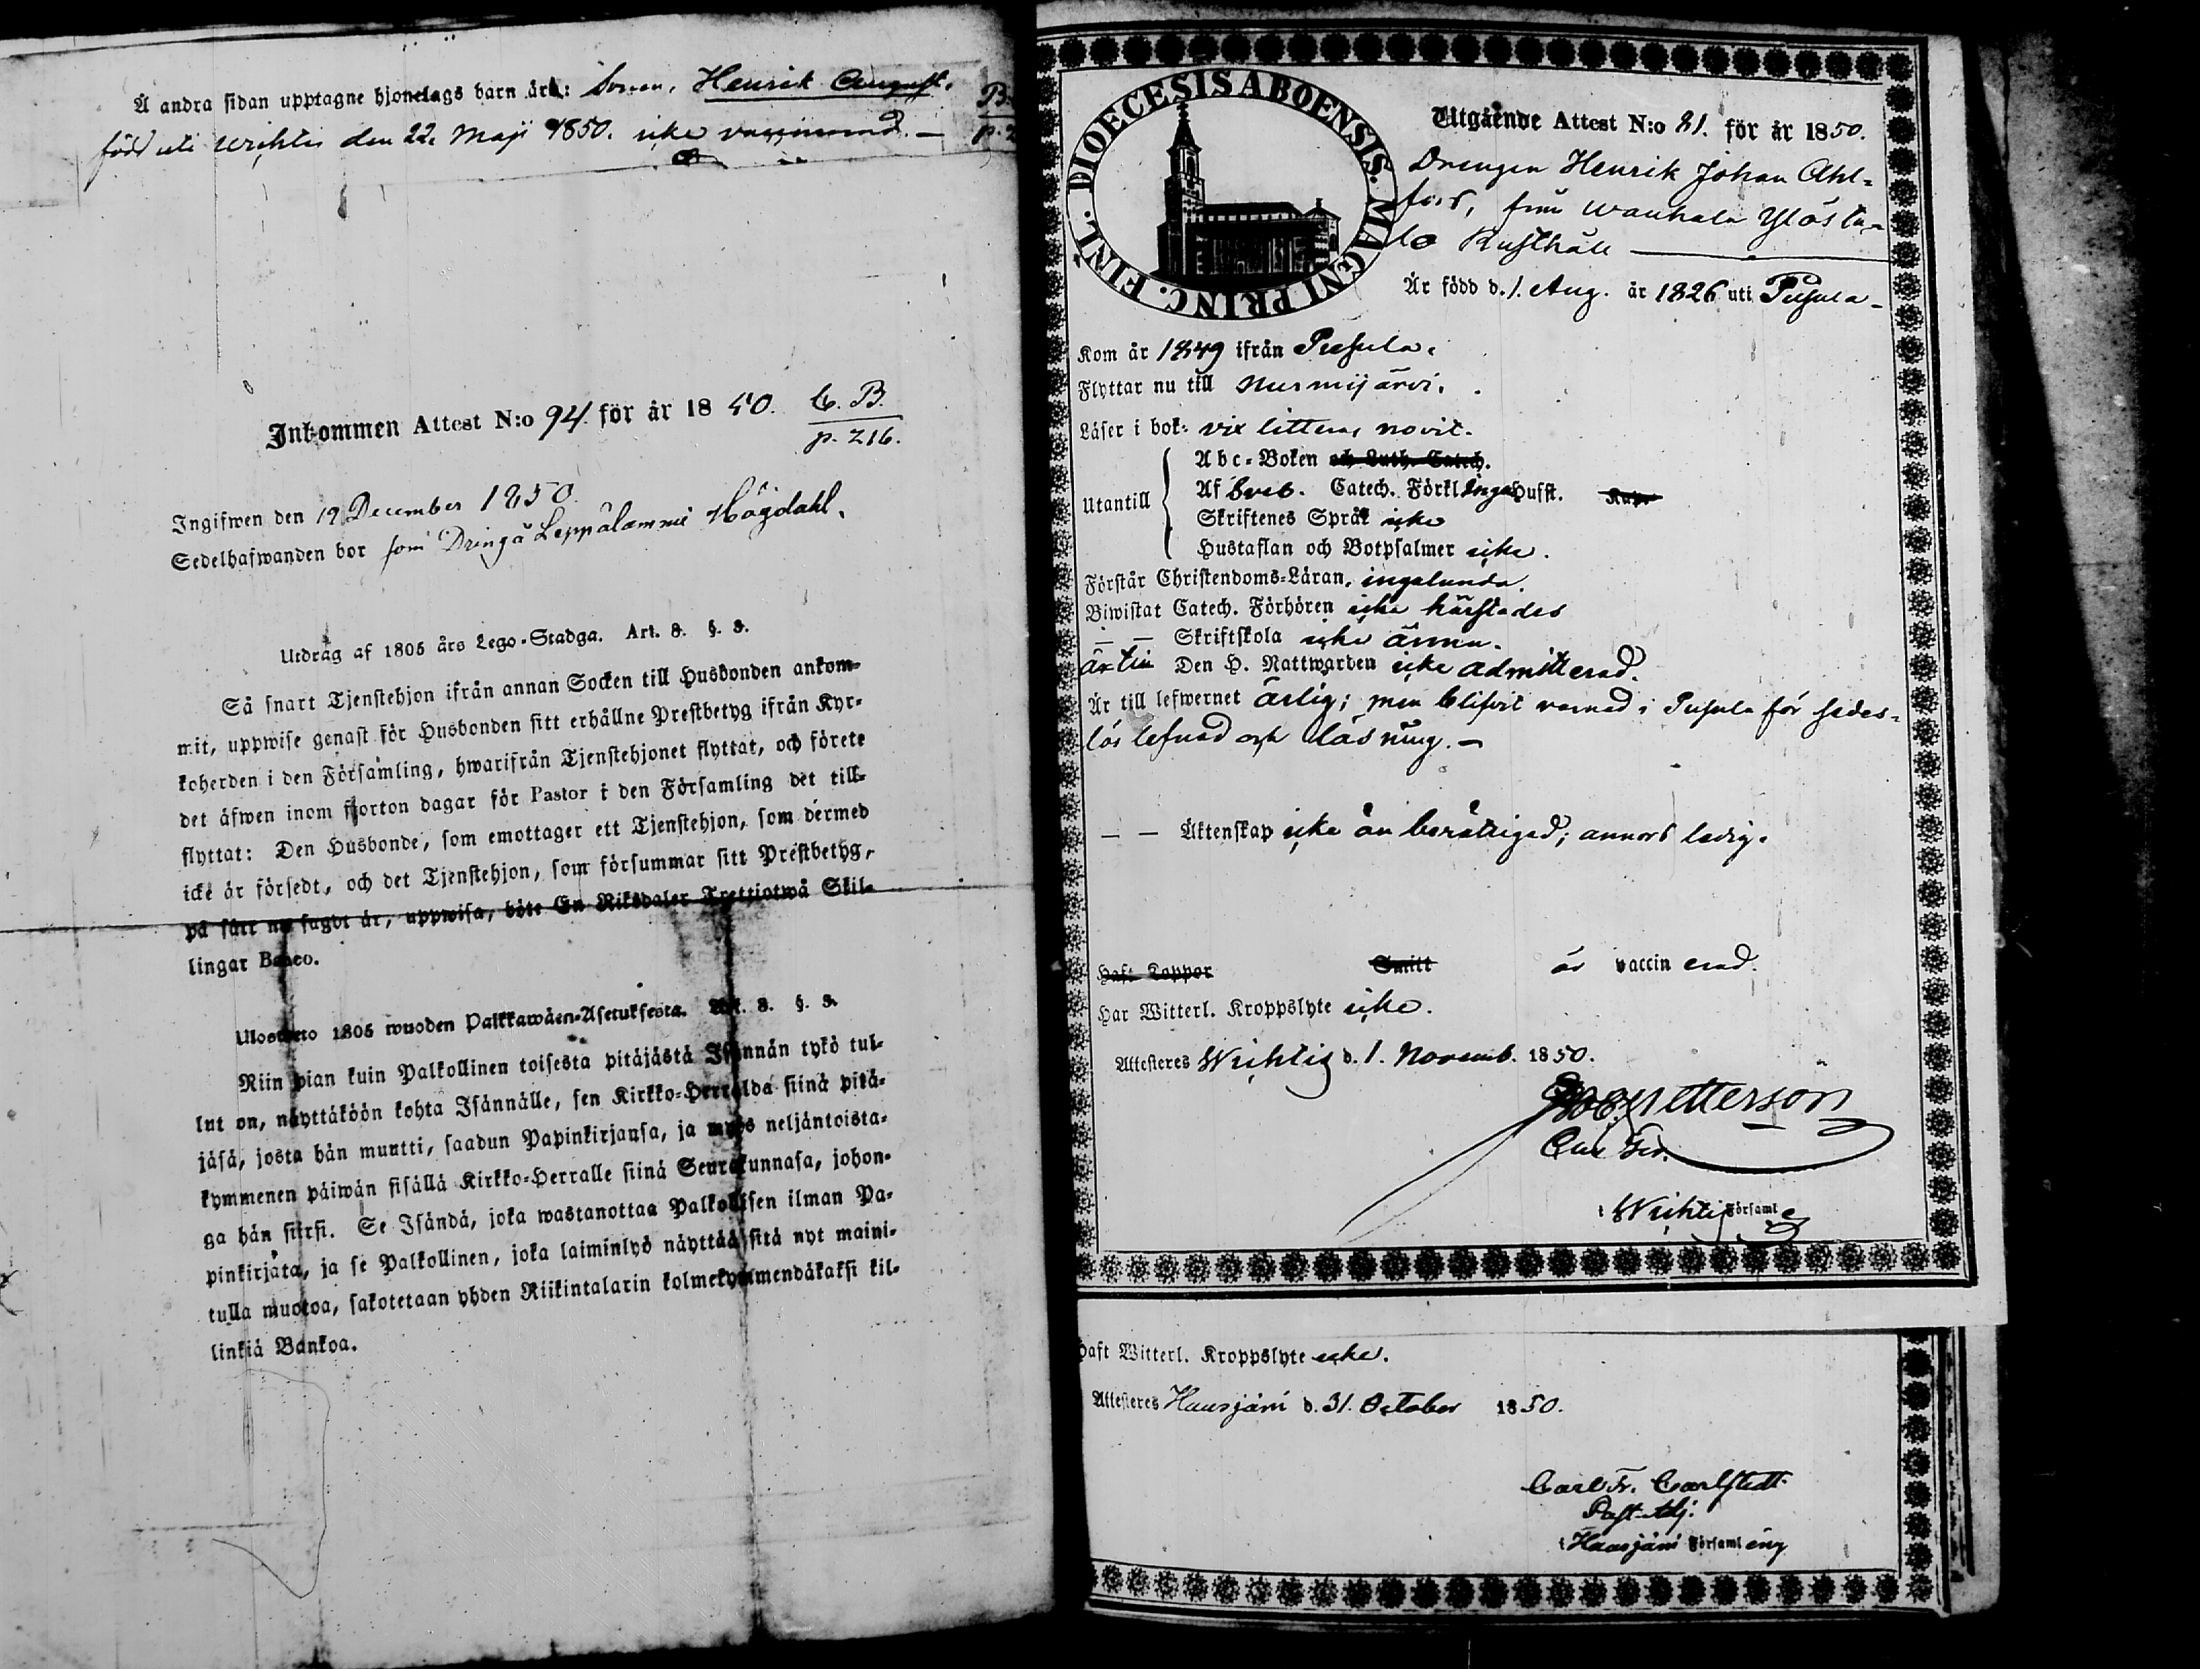 Å andra sidan upptagne hjonelags barn är: Sonen, Henrik August.
född uti Wichtis den 22. Maji 1850. icke vaccinerad. —
B.
p. 2
Inkommen Attest N:o 94. för år 1850. C. B.
p. 216.
Ingifwen den 19 December 1850.
Sedelhafwanden bor som Dräng å Leppälammi Högdahl.
Utdrag af 1805 års Lego-Stadga. Art. 8. §. 3.
Så snart Tjenstehjon ifrån annan Socken till Husbonden ankom-
mit, uppwise genast för Husbonden sitt erhållne Prestbetyg ifrån Kyr-
koherden i den Församling, hwarifrån Tjenstehjonet flyttat, och förete
det äfwen inom fjorton dagar för Pastor i den Församling det till-
flyttat: Den Husbonde, som emottager ett Tjenstehjon, som dermed
icke är försedt, och det Tjenstehjon, som försummar sitt Prestbetyg,
på sätt nu sagdt är, uppwisa, böte En Riksdaler Trettiotwå Skil-
lingar Banco.
Ulosweto 1805 wuoden Palkkawäen-Asetuksesta. Art. 8. §. 3.
Niin pian kuin Palkollinen toisesta pitäjästä Isännän tykö tul-
lut on, näyttäköön kohta Isännälle, sen Kirkko-Herralda siinä pitä-
jäsä, josta hän muutti, saadun Papinkirjansa, ja myös neljäntoista-
kymmenen päiwän sisällä Kirkko-Herralle siinä Seurakunnasa, johon-
ga hän siirsi. Se Isändä, joka wastanottaa Palkollisen ilman Pa-
pinkirjata, ja se Palkollinen, joka laiminlyö näyttää sitä nyt maini-
tulla muotoa, sakotetaan yhden Riikintalarin kolmekymmendäkaksi kil-
linkiä Bankoa.
DIOECESIS ABOENSIS. MAGNI PRINC. FINL.
Utgående Attest N:o 81. för år 1850.
Drengen Henrik Johan Ahl-
fors, från Wanhala Ylösta-
lo Rusthåll
Är född d. 1. Aug. år 1826 uti Pusula
Kom år 1849 ifrån Pusula.
Flyttar nu till Nurmijärvi.
Läser i bok: vix litteras novit.
Utantill
Abc-Boken och Luth. Catech.
Af Sveb. Catech. Förkl. inga Husst. Kap.
Skriftenes Språk icke
Hustaflan och Botpsalmer icke.
Förstår Christendoms-Läran, ingalunda.
Biwistat Catech. Förhören icke härstädes
— — Skriftskola icke ännu.
är till Den H. Nattwarden icke admitterad.
Är till lefwernet ärlig; men blifvit varnad i Pusula för sedes-
lös lefnad och läsning. —
— — Äktenskap icke än berättigad; annors ledig.
Haft Koppor Smitt är vaccinerad.
Har Witterl. Kroppslyte icke.
Attesteres Wichtis d. 1. Novemb. 1850.
Petterson
i Wichtis Församl
Haft Witterl. Kroppslyte icke.
Attesteres Hausjärvi d. 31. October 1850.
Carl Fr. Carlstedt
Past. Adj.
i Hausjärvi Församling